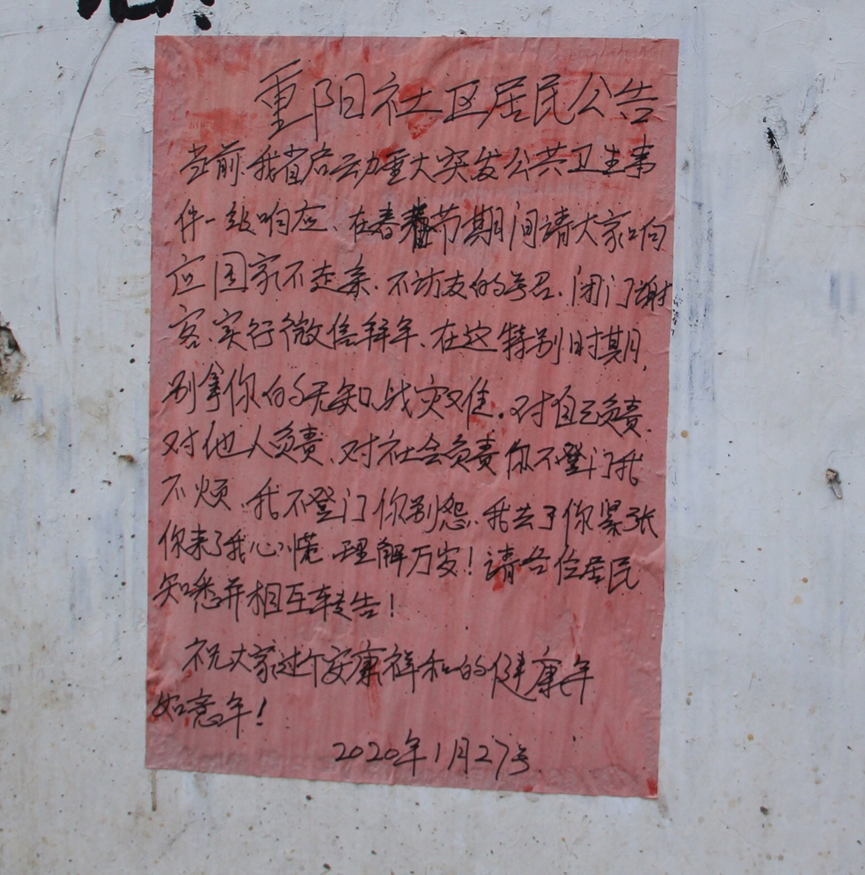 重阳社区居民公告
当前我省启动重大突发公共卫生事
件一级响应、在春节期间请大家响
应国家不走亲、不访友的号召、闭门谢
客、实行微信拜年、在这特别时期,
别拿你的无知战灾难。对自己负责、
对他人负责、对社会负责你不登门我
不烦、我不登门你别怨、我去了你紧张
你来了我心慌、理解万岁!请各位居民
知悉并相互转告!
祝大家过个安康祥和的健康年
如意年!
2020年1月27号